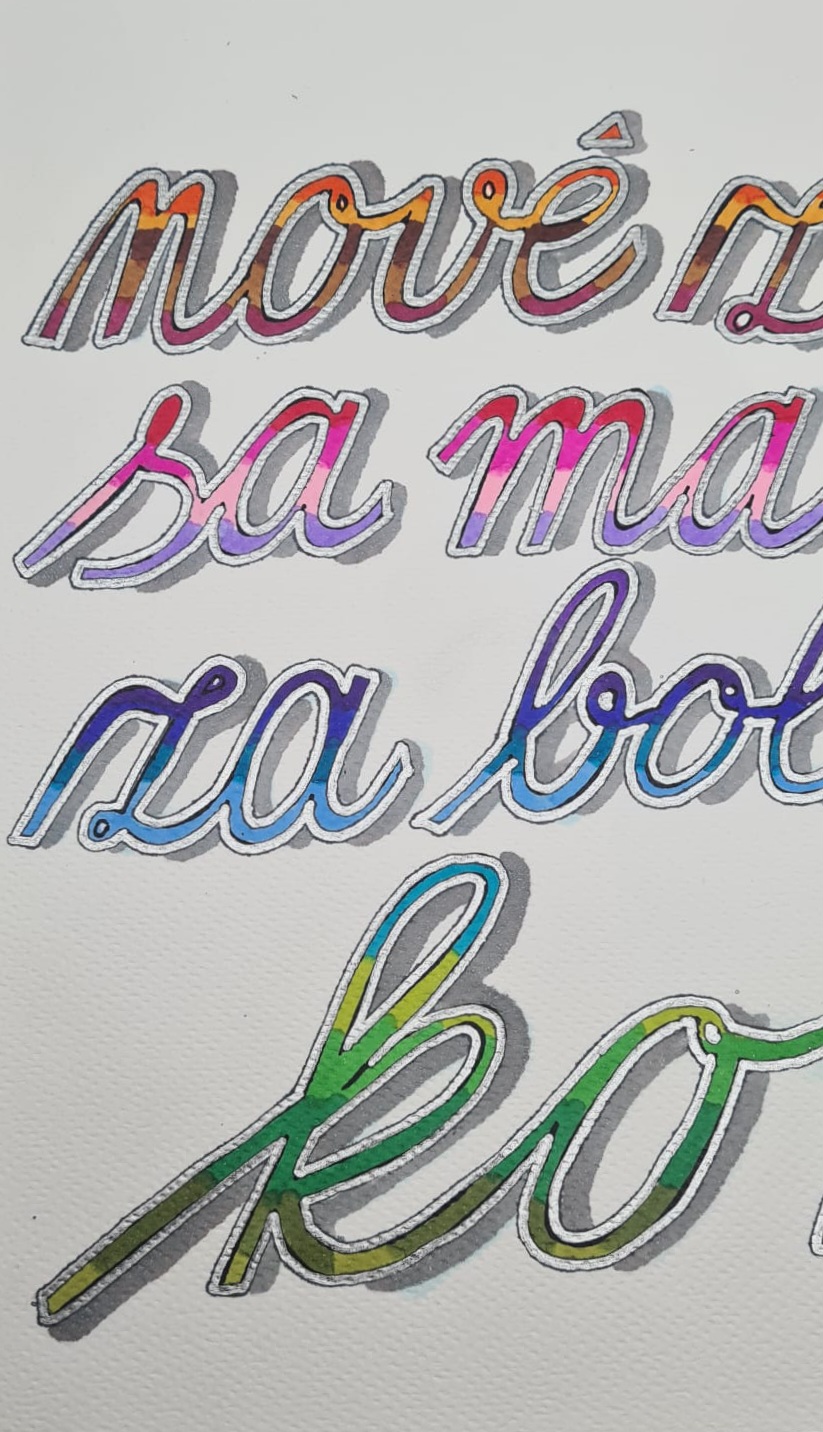 nové z
sa ma
za bo
ko